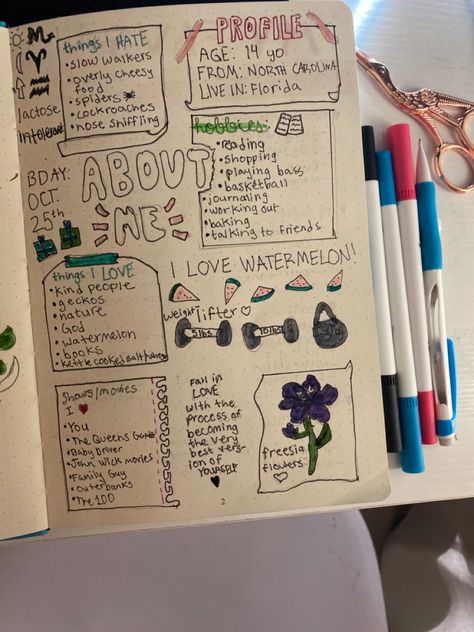 things I HATE
•slow walkers
•overly cheesy
food
•spiders
•cockroaches
•nose sniffling
lactose
intolerant
PROFILE
AGE: 14 yo
FROM: NORTH CAROLINA
LIVE IN: Florida
hobbies
•reading
•shopping
•playing bass
•basketball
•journaling
•working out
•baking
•talking to friends
BDAY:
OCT.
25th
ABOUT
ME
things I LOVE
•kind people
•geckos
•nature
•God
•watermelon
•books
•kettle cooked salt/vinegar
I LOVE WATERMELON!
weight lifter
5lbs
10lbs
shows/movies
I
•You
•The Queens Gambit
•Baby Driver
•John Wick movies
•Family Guy
•outerbanks
•The 100
fall in
LOVE
with the
process of
becoming
the very
best vers-
ion of
YOURSELF
freesia
flowers
2